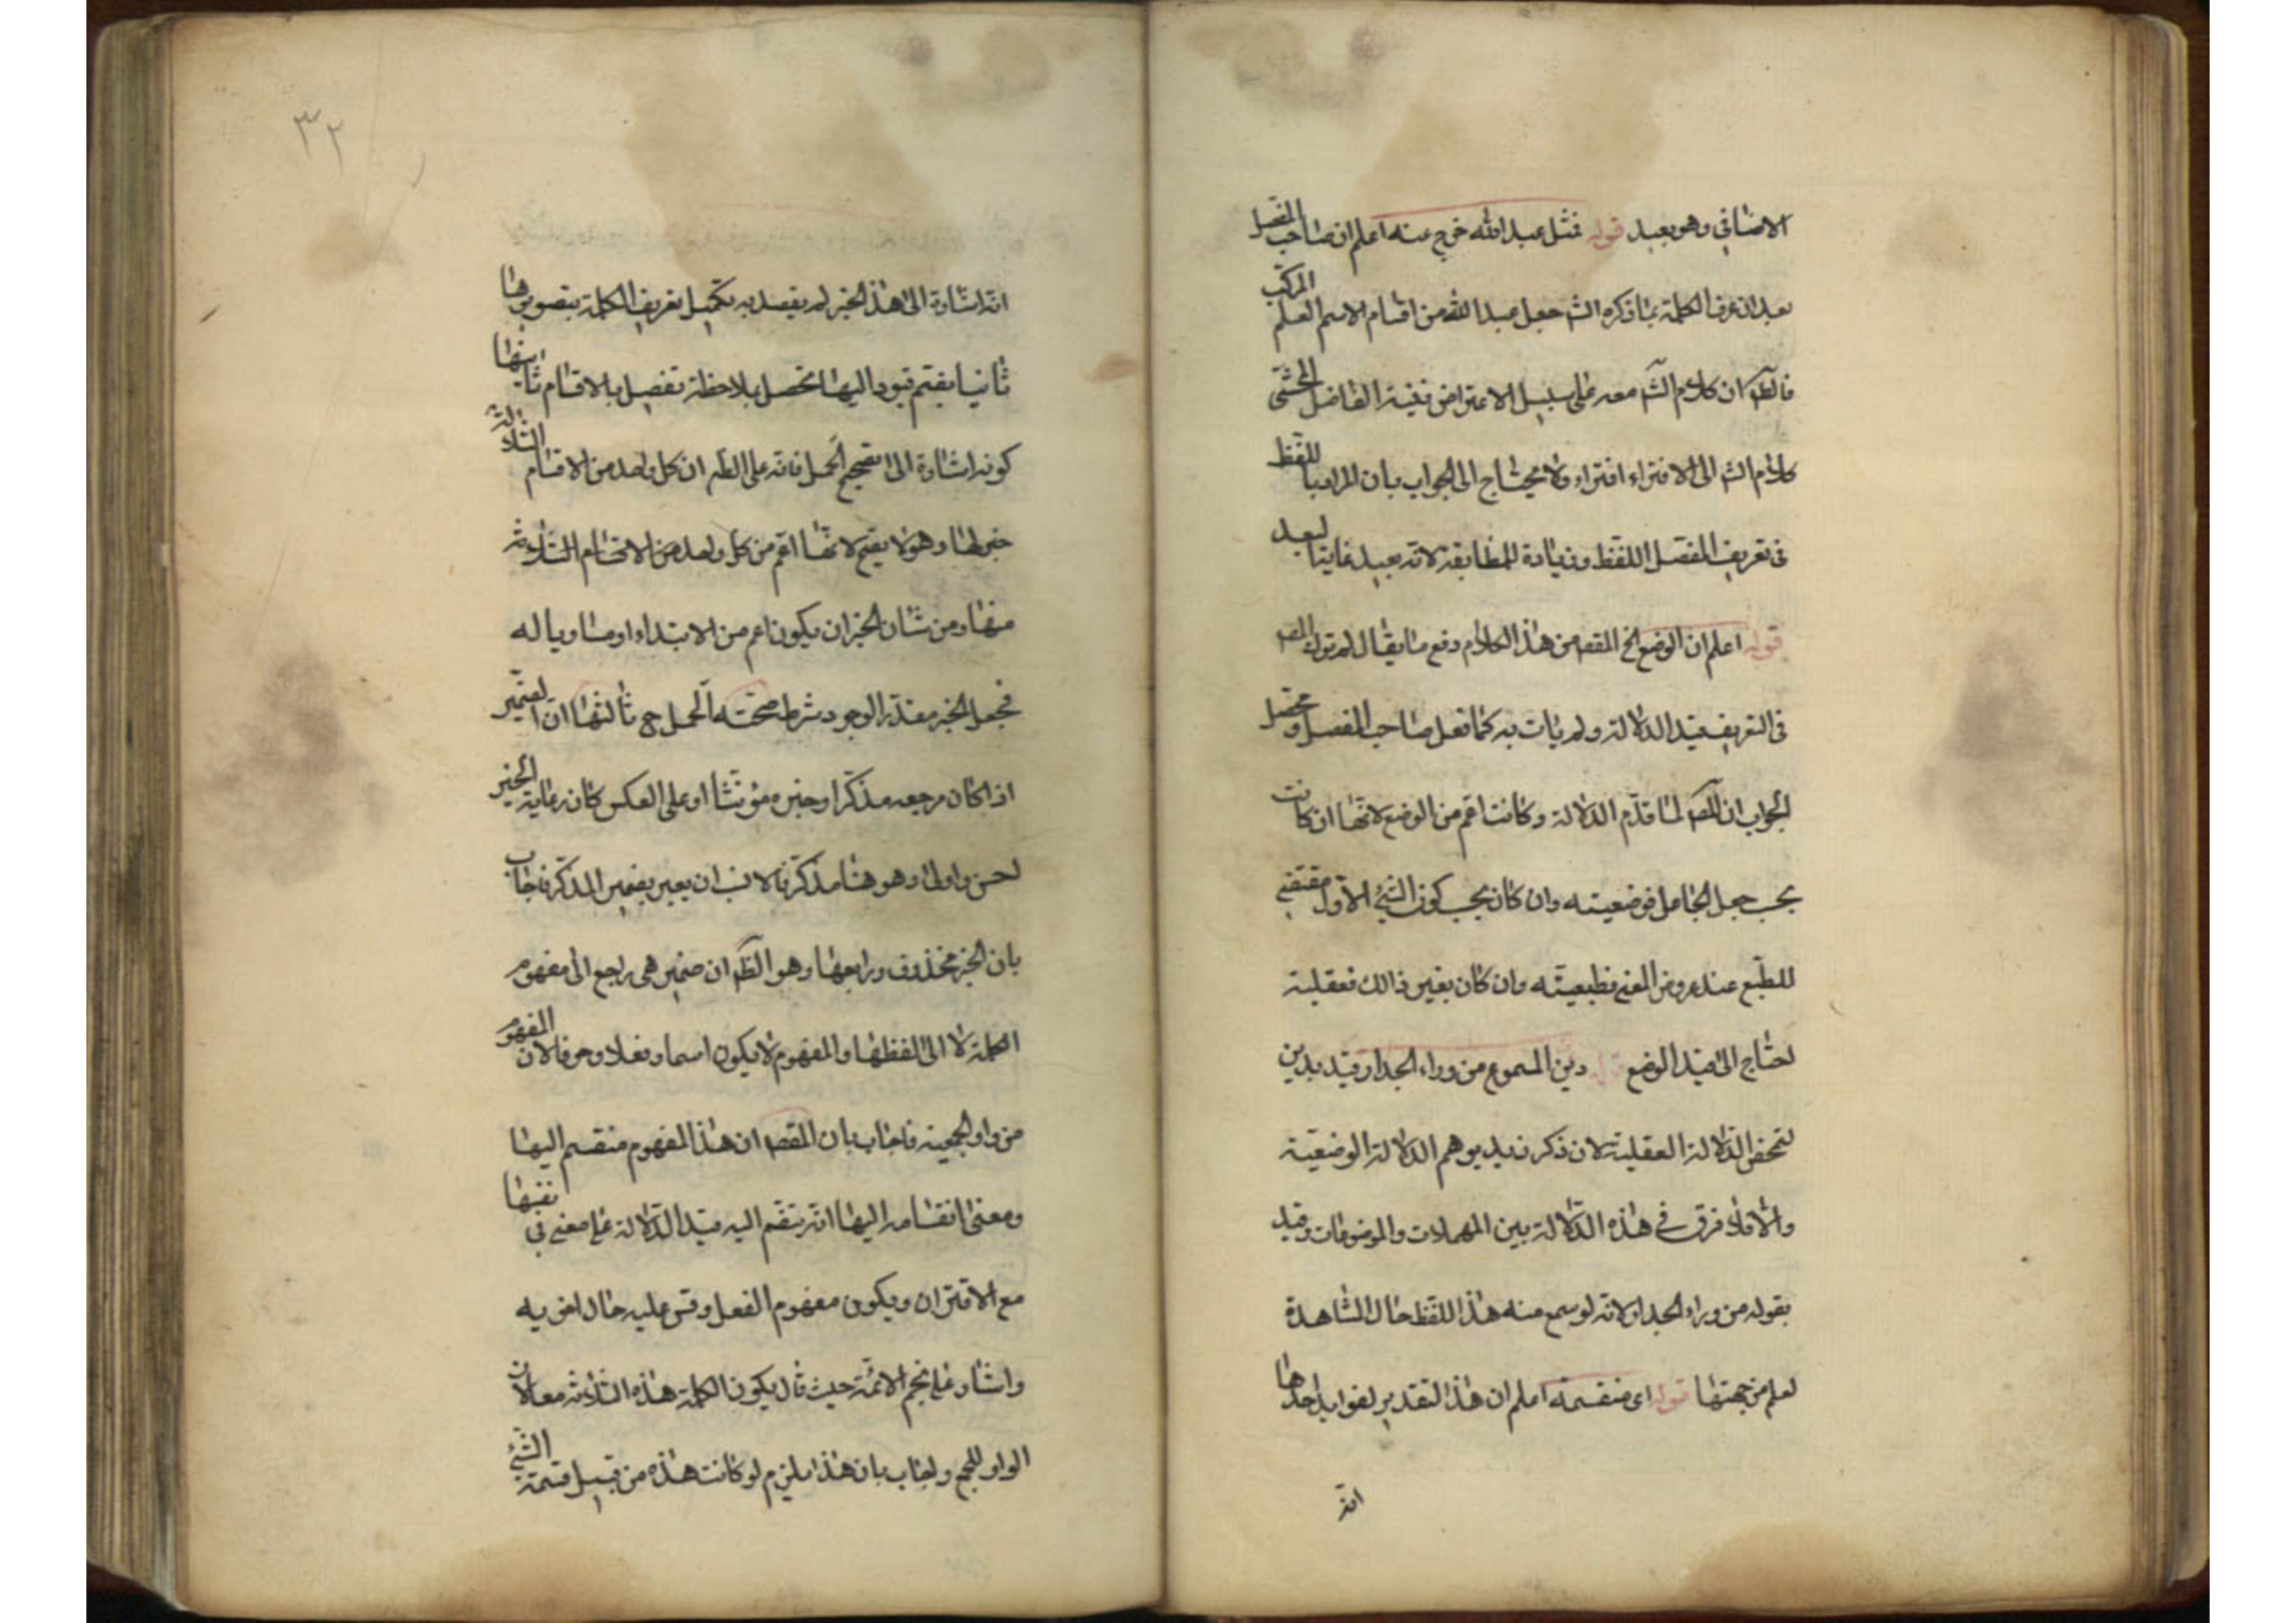 الاضافي وهو بعيد قوله فمثل عبد الله خرج عنه اعلم ان صاحب المفصل
بعد ان عرف الكلمة بما ذكره الشـ جعل عبد الله من اقسام الاسم العلم المركب
فالظـ ان كلام الشـ معه على سبيل الاعتراض فنسبة الفاضل المحشى
كلام الشـ الى الافتراء افتراء ولا يحتاج الى الجواب بان المراد باللفظ
فى تعريف المفصل اللفظ وزيادة للمطابقة لانه بعيد غاية البعد
قوله اعلم ان الوضع الخ المقصـ من هذا الكلام دفع ما يقال لم ترك المصـ
فى التعريف قيد الدلالة ولم يات به كما فعل صاحب المفصل ومحصل
الجواب ان المصـ لما قدم الدلالة وكانت اعم من الوضع لانها ان كانت
بحسب جعل الجاعل فوضعيته وان كان بحسب كون الشئ الاول مقتضى
للطبع عند عروض المعنى فطبيعيته وان كان بغير ذالك فعقلية
احتاج الى قيد الوضع قوله ديز المسموع من وراء الجدار قيد بديز
لتحض الدلالة العقلية لان ذكر زيد يوهم الدلالة الوضعية
والا فلا فرق فى هذه الدلالة بين المهملات والموضوعات وقيد
بقوله من وراء الجدار لانه لو سمع منه هذا اللفظ حال المشاهدة
لعلم من جهتها قوله اى منقسمة اعلم ان هذا التقدير لفوايد احدها
انه
٣٢
انه اشارة الى هذا الخبر لم يقصد به تكميل تعريف الكلمة بتصويرها
ثانيا بضم قيود اليها تحصل بملاحظة تفصيل بالاقسام ثانيها
كونه اشارة الى تصحيح الحمل فانه على الظـ ان كل واحد من الاقسام الثلاثة
خبر لها وهو لا يصح لانها اعم من كل واحد من الاقسام الثلاثة
منها ومن شان الخبر ان يكون اعم من الابتداء او مساويا له
فجعل الخبر مقدر الوجود شرط صحته الحمل ح ثالثها ان الضمير
اذا كان مرجعه مذكرا وخبره مؤنثا او على العكس كان رعاية الخبر
احسن واولى وهو هنا مذكر فالانسب ان يعبر بضمير المذكر فاجاب
بان الخبر محذوف ورابعها وهو الظـ ان ضمير هى راجع الى مفهوم
الكلمة لا الى لفظها والمفهوم لا يكون اسما وفعلا وحرفا لان المفهوم
من واو الجمعية فاجاب بان المقصـ ان هذا المفهوم منقسم اليها
ومعنى انقسامه اليها انه بتضم اليه قيد الدلالة على معنى فى نفسها
مع الاقتران ويكون مفهوم الفعل وقس عليه حال اخويه
واشار على نجم الائمة حيث قال يكون الكلمة هذه الثلاثة معا لان
الواو للجمع واجاب بان هذا يلزم لو كانت هذه من قبيل قسمة الشئ